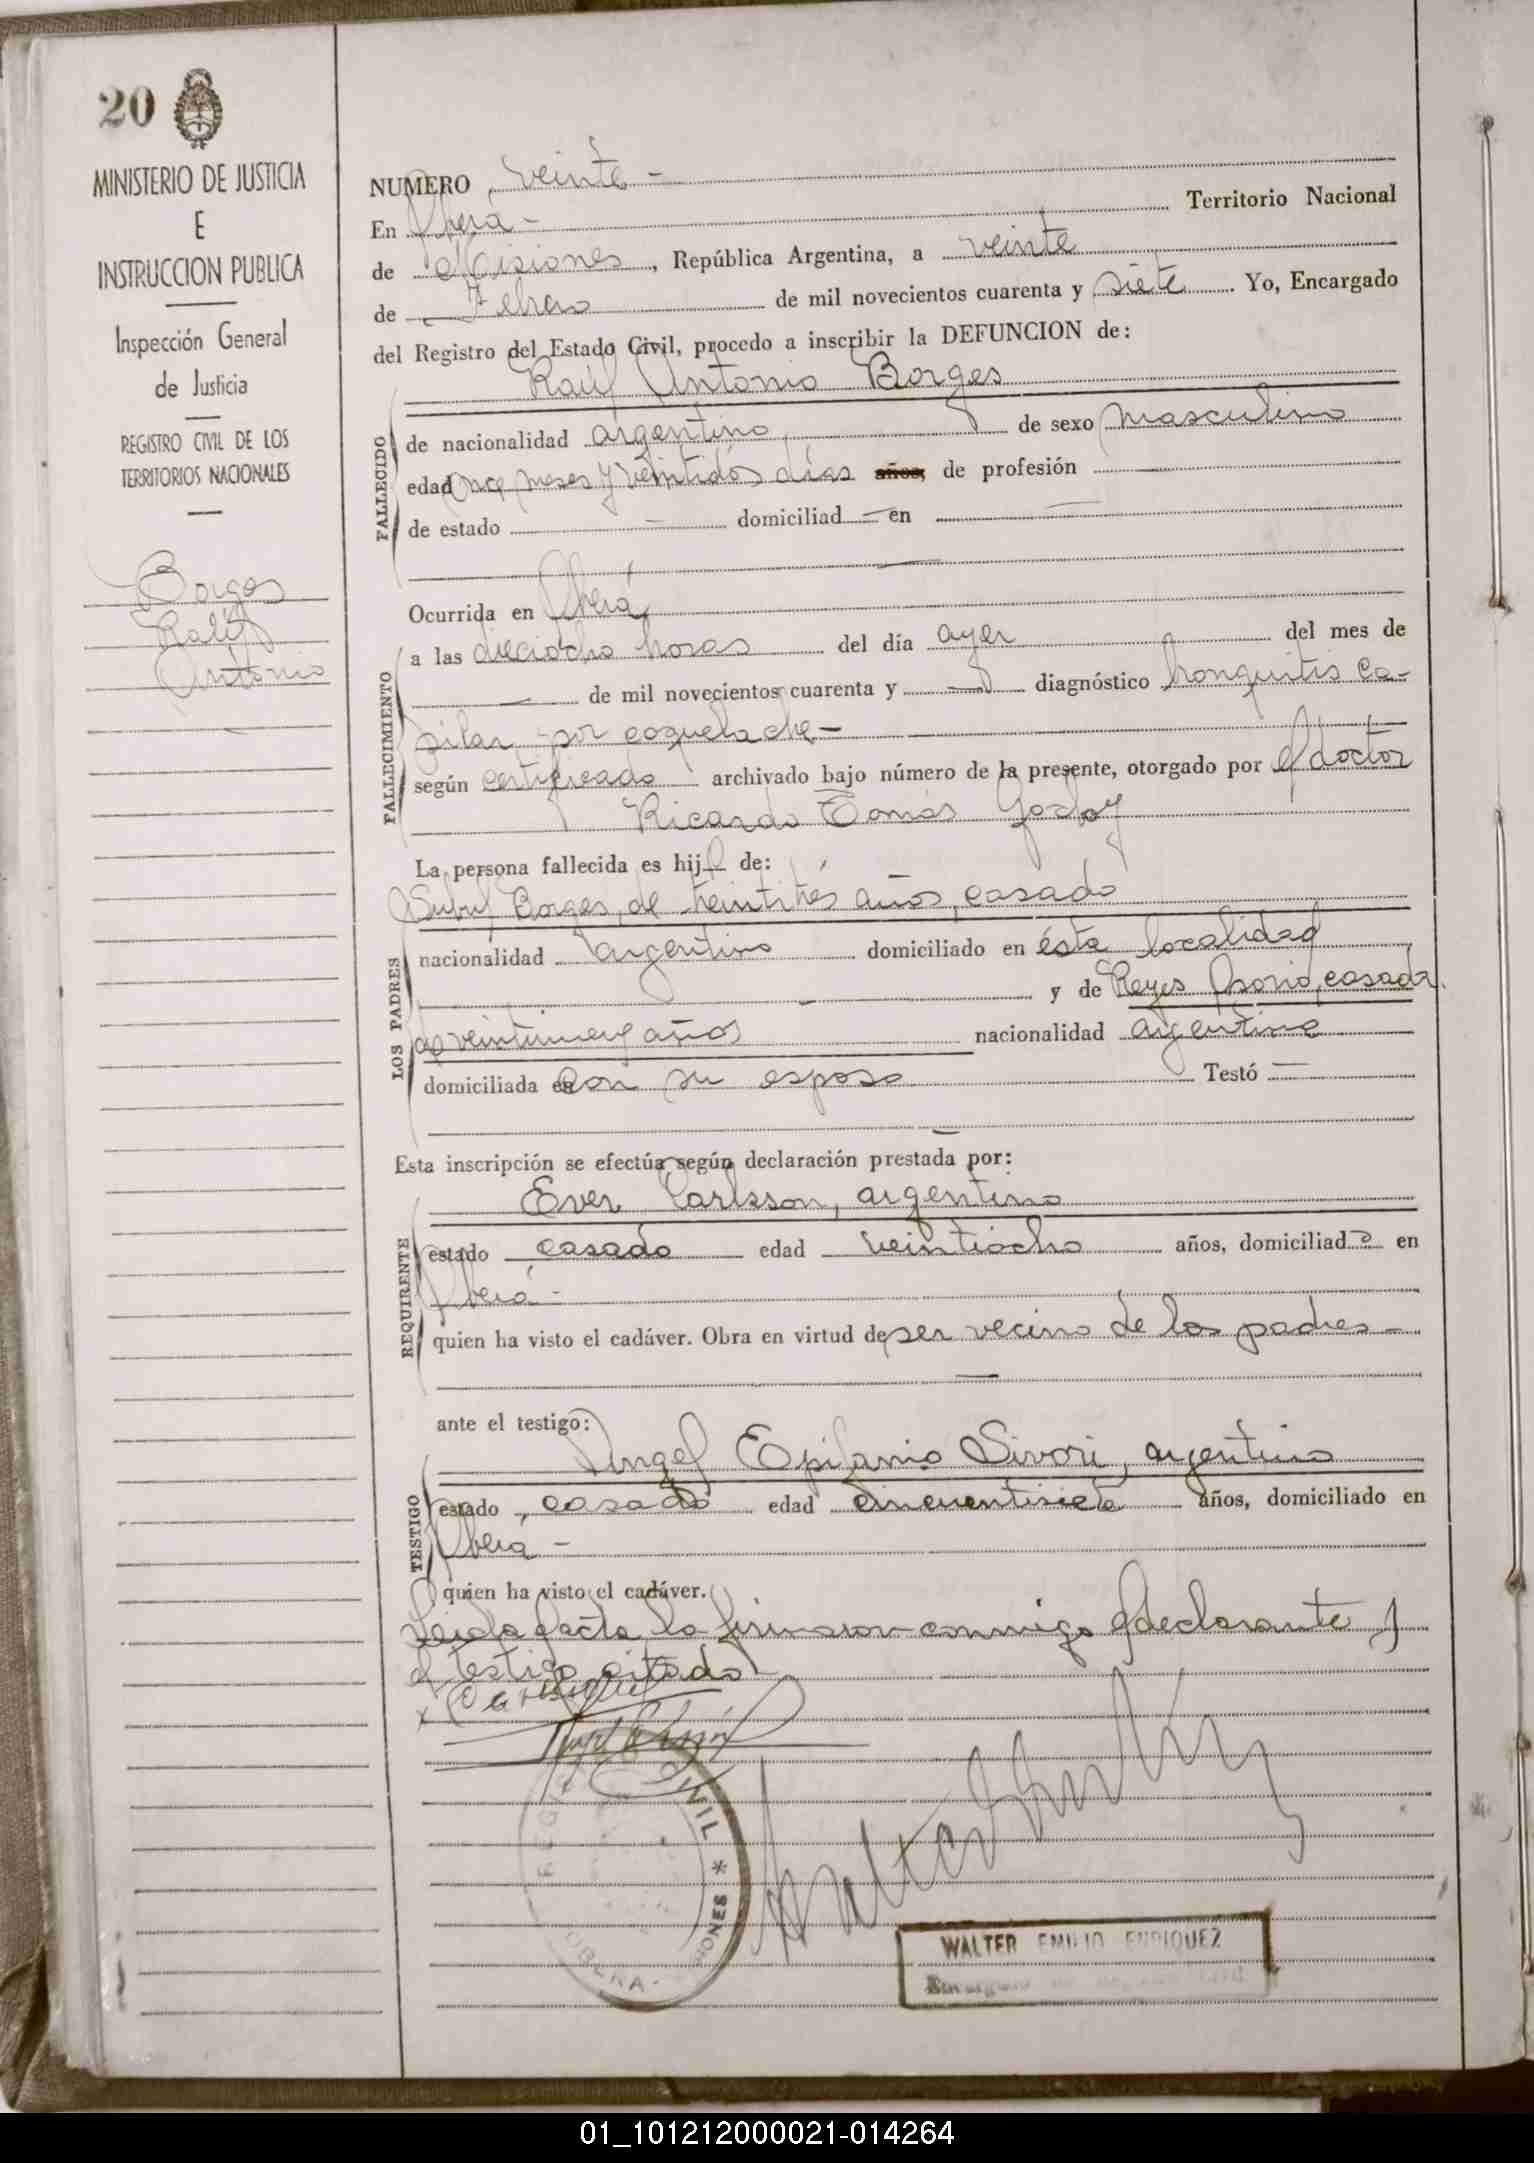 20
MINISTERIO DE JUSTICIA
E
INSTRUCCION PUBLICA
Inspección General
de Justicia
REGISTRO CIVIL DE LOS
TERRITORIOS NACIONALES
Borges
Raúl
Antonio
NUMERO veinte -
En Oberá - Territorio Nacional
de Misiones, República Argentina, a veinte
de Febrero de mil novecientos cuarenta y siete. Yo, Encargado
del Registro del Estado Civil, procedo a inscribir la DEFUNCION de:
Raúl Antonio Borges
FALLECIDO
de nacionalidad argentino, de sexo masculino
edad once meses y veintidós días años, de profesión —
de estado — domiciliad — en —
FALLECIMIENTO
Ocurrida en Oberá,
a las dieciocho horas del día ayer del mes de
— de mil novecientos cuarenta y — diagnóstico bronquitis ca-
pilar por coqueluche -
según certificado archivado bajo número de la presente, otorgado por el doctor
Ricardo Tomás Godoy
La persona fallecida es hij de:
LOS PADRES
Borges, de años, casado
nacionalidad argentino domiciliado en ésta localidad
y de Reyes Osorio, casada
de veintinueve años nacionalidad argentina
domiciliada en con su esposo Testó —
Esta inscripción se efectúa según declaración prestada por:
REQUIRENTE
Ever Carlsson, argentino
estado casado edad veintiocho años, domiciliado en
Oberá -
quien ha visto el cadáver. Obra en virtud de ser vecino de los padres -
ante el testigo:
TESTIGO
Angel Epifanio Sivori, argentino
estado casado edad cincuentisiete años, domiciliado en
Oberá -
quien ha visto el cadáver.
Leida el acta, la firmaron conmigo el declarante y
el testigo citado
CIVIL * MISIONES
OBERA
WALTER EMILIO ENRIQUEZ
01_101212000021-014264